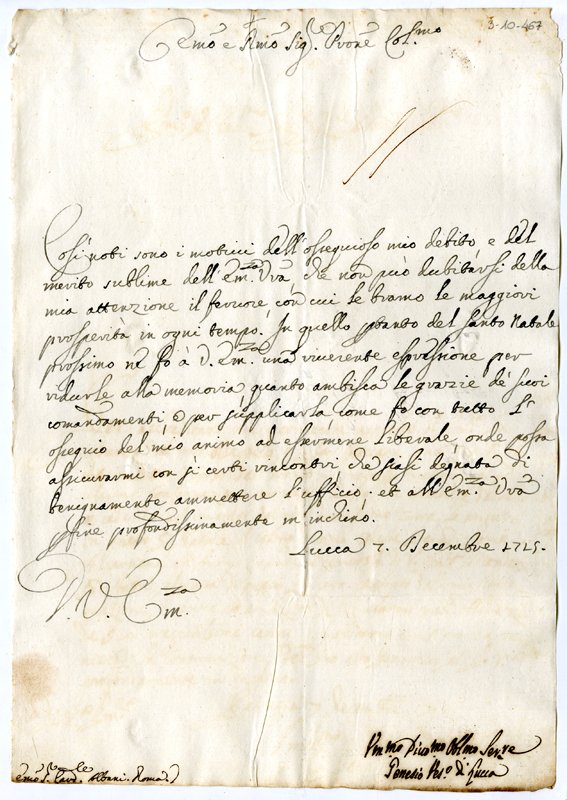 3-10-467
Emo e Rmo Sig.re Prone Col.mo
Così noti sono i motivi dell'ossequioso mio debito, e del
merito sublime dell'Em.za Vra che non può dubitarsi della
mia attenzione il fervore con cui le bramo le maggiori
prosperità in ogni tempo. In quello ptanto del Santo Natale
prossimo ne fo à V. Em.za una riverente espressione per
ridurle alla memoria quanto ambisca le grazie de' suoi
comandamenti e per supplicarla come fo con tutto l'
ossequio del mio animo ad essermene liberale, onde possa
assicurarmi con sì certi rincontri che siasi degnata di
benignamente ammettere l'ufficio; et all'Em.za Vra
pfine profondissimamente m'inchino.
Lucca 7. Decembre 1715.
V. V. Em.za
Um.mo Divo.mo Obl.mo Ser.re
Genesio Ves.o di Lucca
Emo S.r Card.le Albani. Roma.